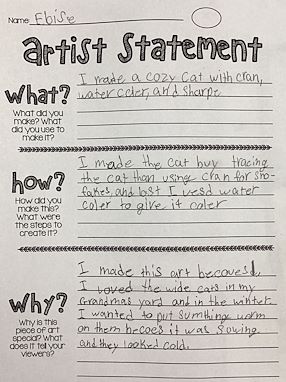 Name Ebise
artist Statement
What?
What did you
make? What
did you use to
make it?
I made a cozy cat with cran,
water coler, and sharpe
how?
How did you
make this?
What were
the steps to
create it?
I made the cat buy tracing
the cat than using cran for sno-
fakes, and last I uesd water
coler to give it coler
Why?
Why is this
piece of art
special? What
does it tell your
viewers?
I made this art becoues
I loved the wide cats in my
Grandmas yard and in the winter
I wanted to put sumthings worm
on them becoes it was Sowing
and they looked cold.